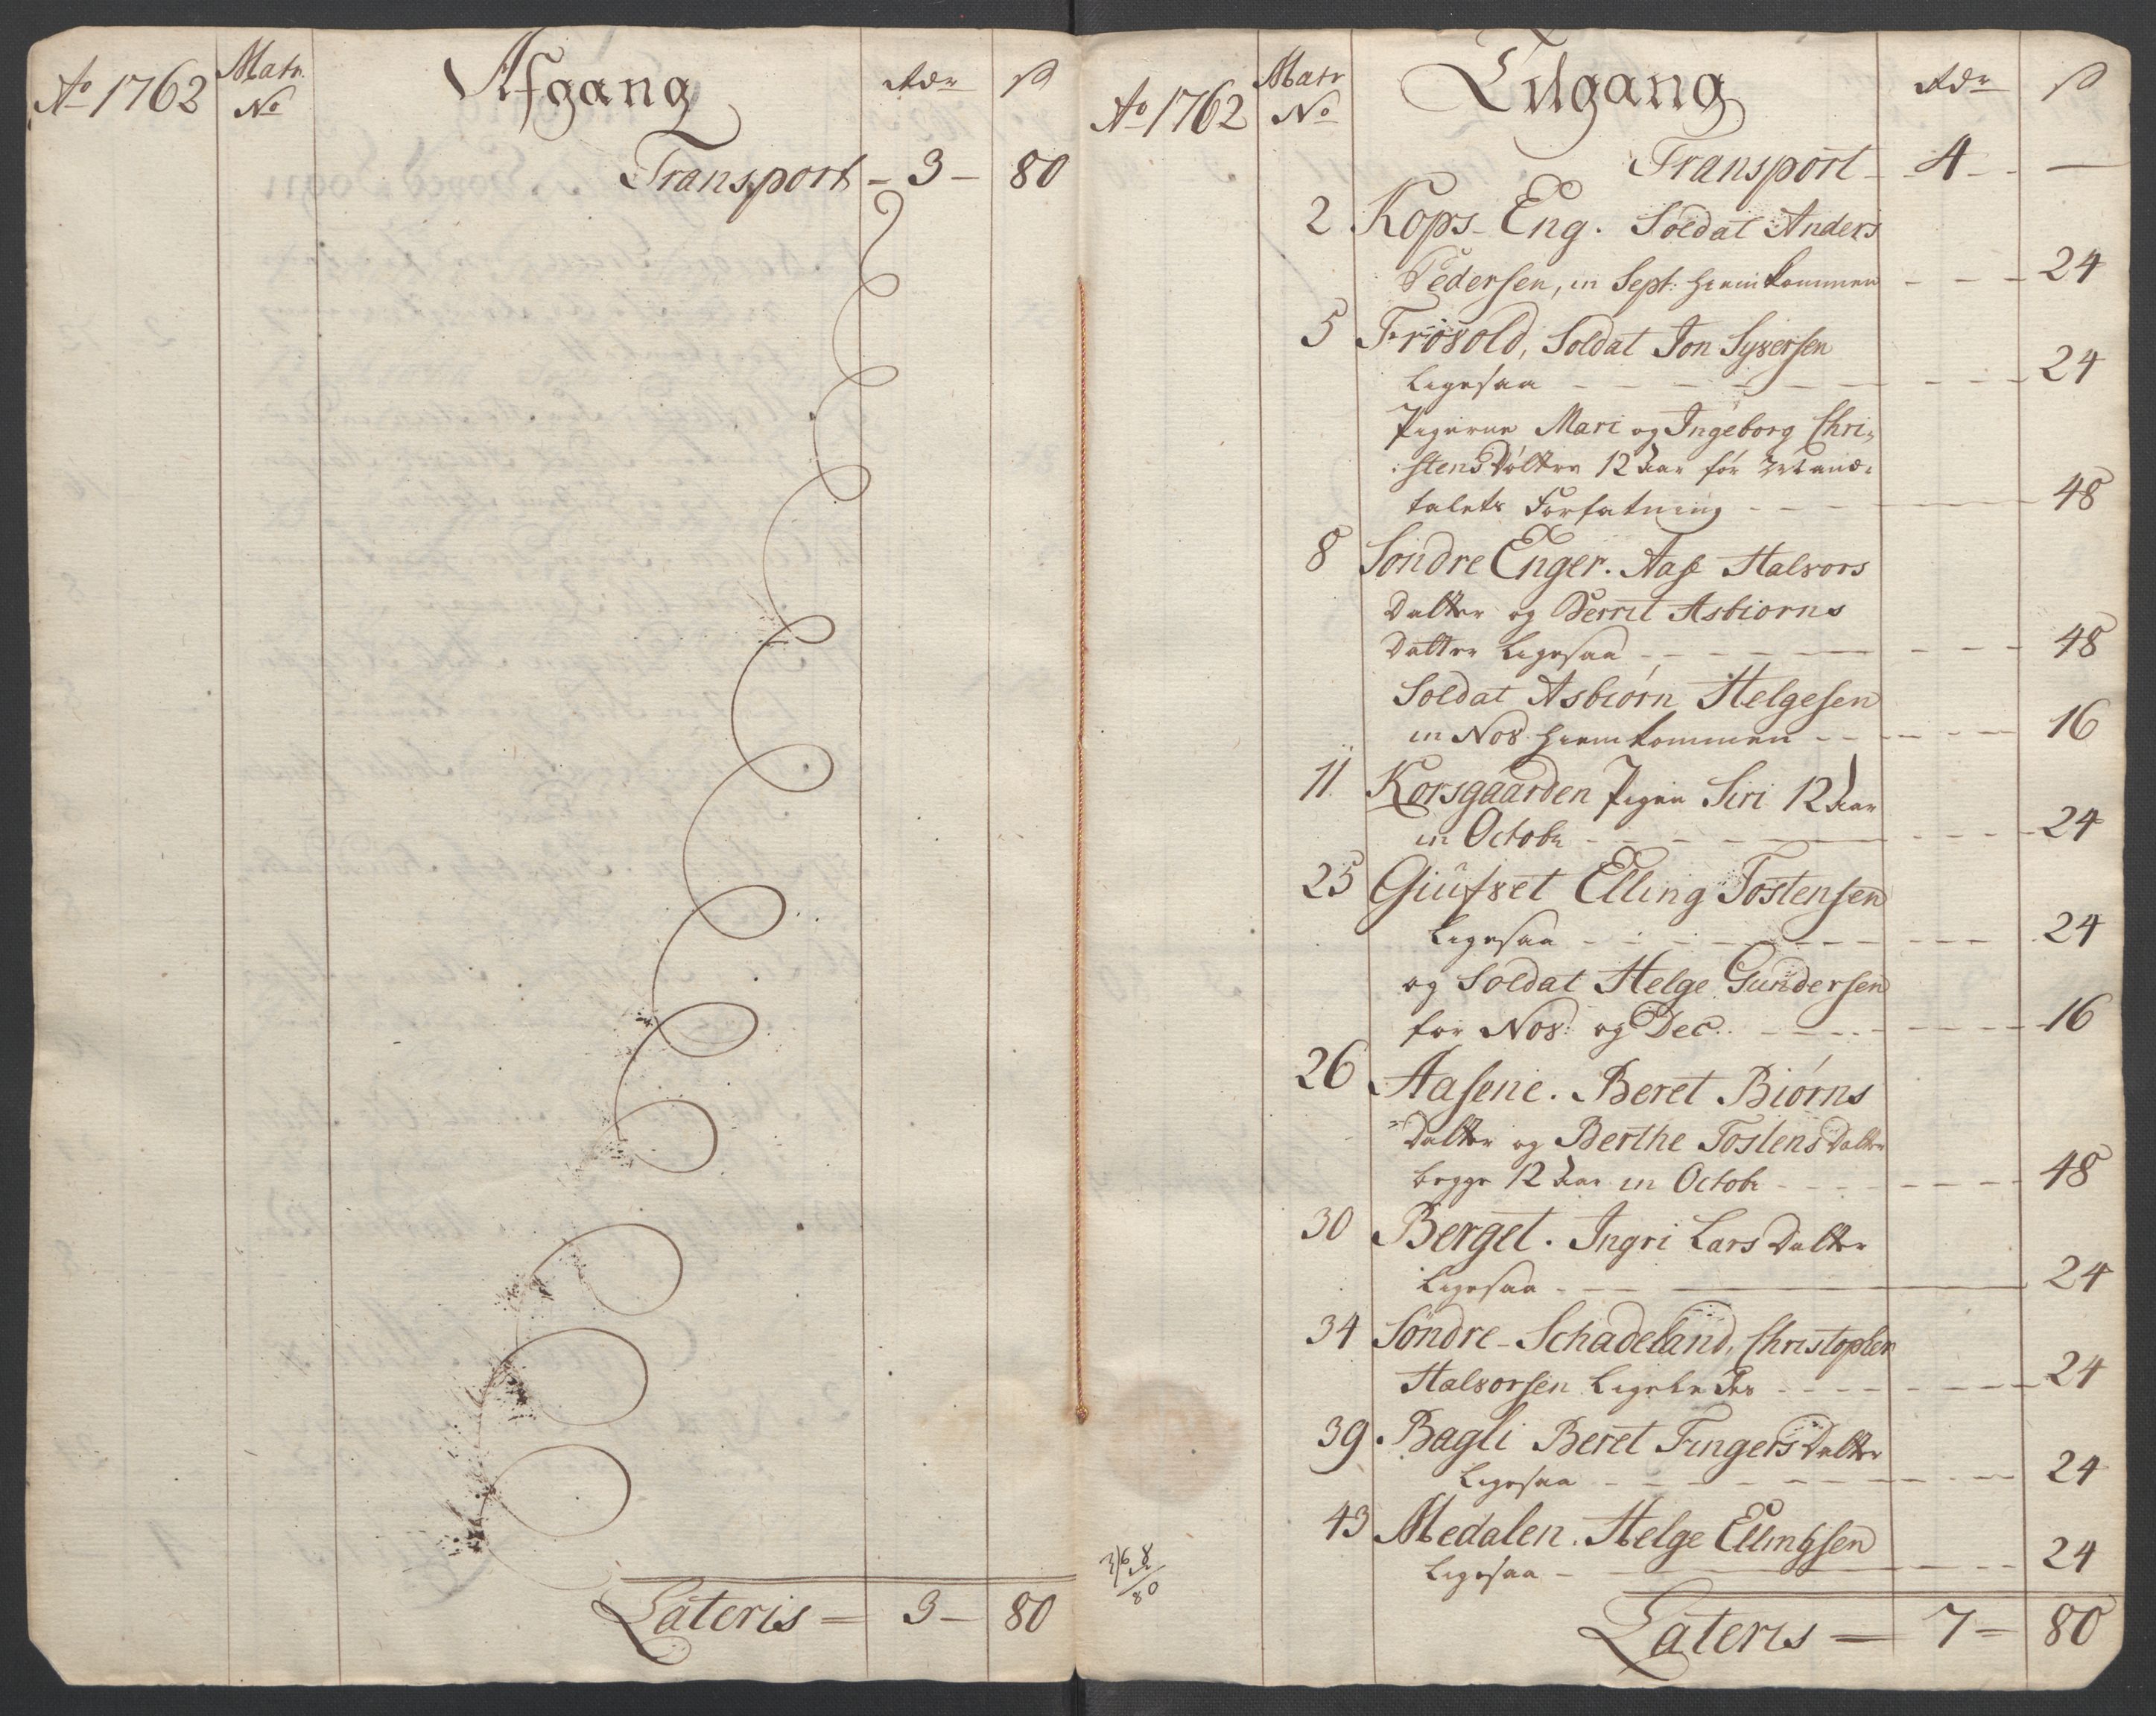 Ao 1762
Matr.
No
Afgang
Rdr
ß
Transport - 3 - 80
Lateris = 3 - 80
Ao 1762
Matr
No
Tilgang
Rdr
ß
Transport - 4 - -
2 Kops-Eng. Soldat Anders
Pedersen, in Sept: hiemkommen - - - 24
5 Frøsold, Soldat Jon Syversen
Ligesaa - - - 24
Pigerne Mari og Ingeborg Chri-
stens Døttre 12 Aar før Mand-
talets Forfatning - - - 48
8 Søndre Enger. Aase Halvors
Datter og Berrit Asbiorns
Datter Ligesaa - - - 48
Soldat Asbiørn Helgesen
in Nov. hiemkommen - - - 16
11. Korsgaarden Pigen Siri 12 Aar
in Octobr - - - 24
25 Giufset Elling Tostensen
Ligesaa - - - 24
og Soldat Helge Gundersen
for Nov: og Dec: - - - 16
26 Aasene. Beret Biørns
Datter og Berthe Tostens Datter
begge 12 Aar in Octobr - - - 48
30 Berget. Ingri Lars Datter
Ligesaa - - - 24
34 Søndre-Schadeland, Christopher
Halvorsen Ligeledes - - - 24
39. Bagli Beret Fingers Datter
Ligesaa - - - 24
43 Medalen. Helge Ellingsen
Ligesaa - - - 24
368
80
Lateris = 7 = 80